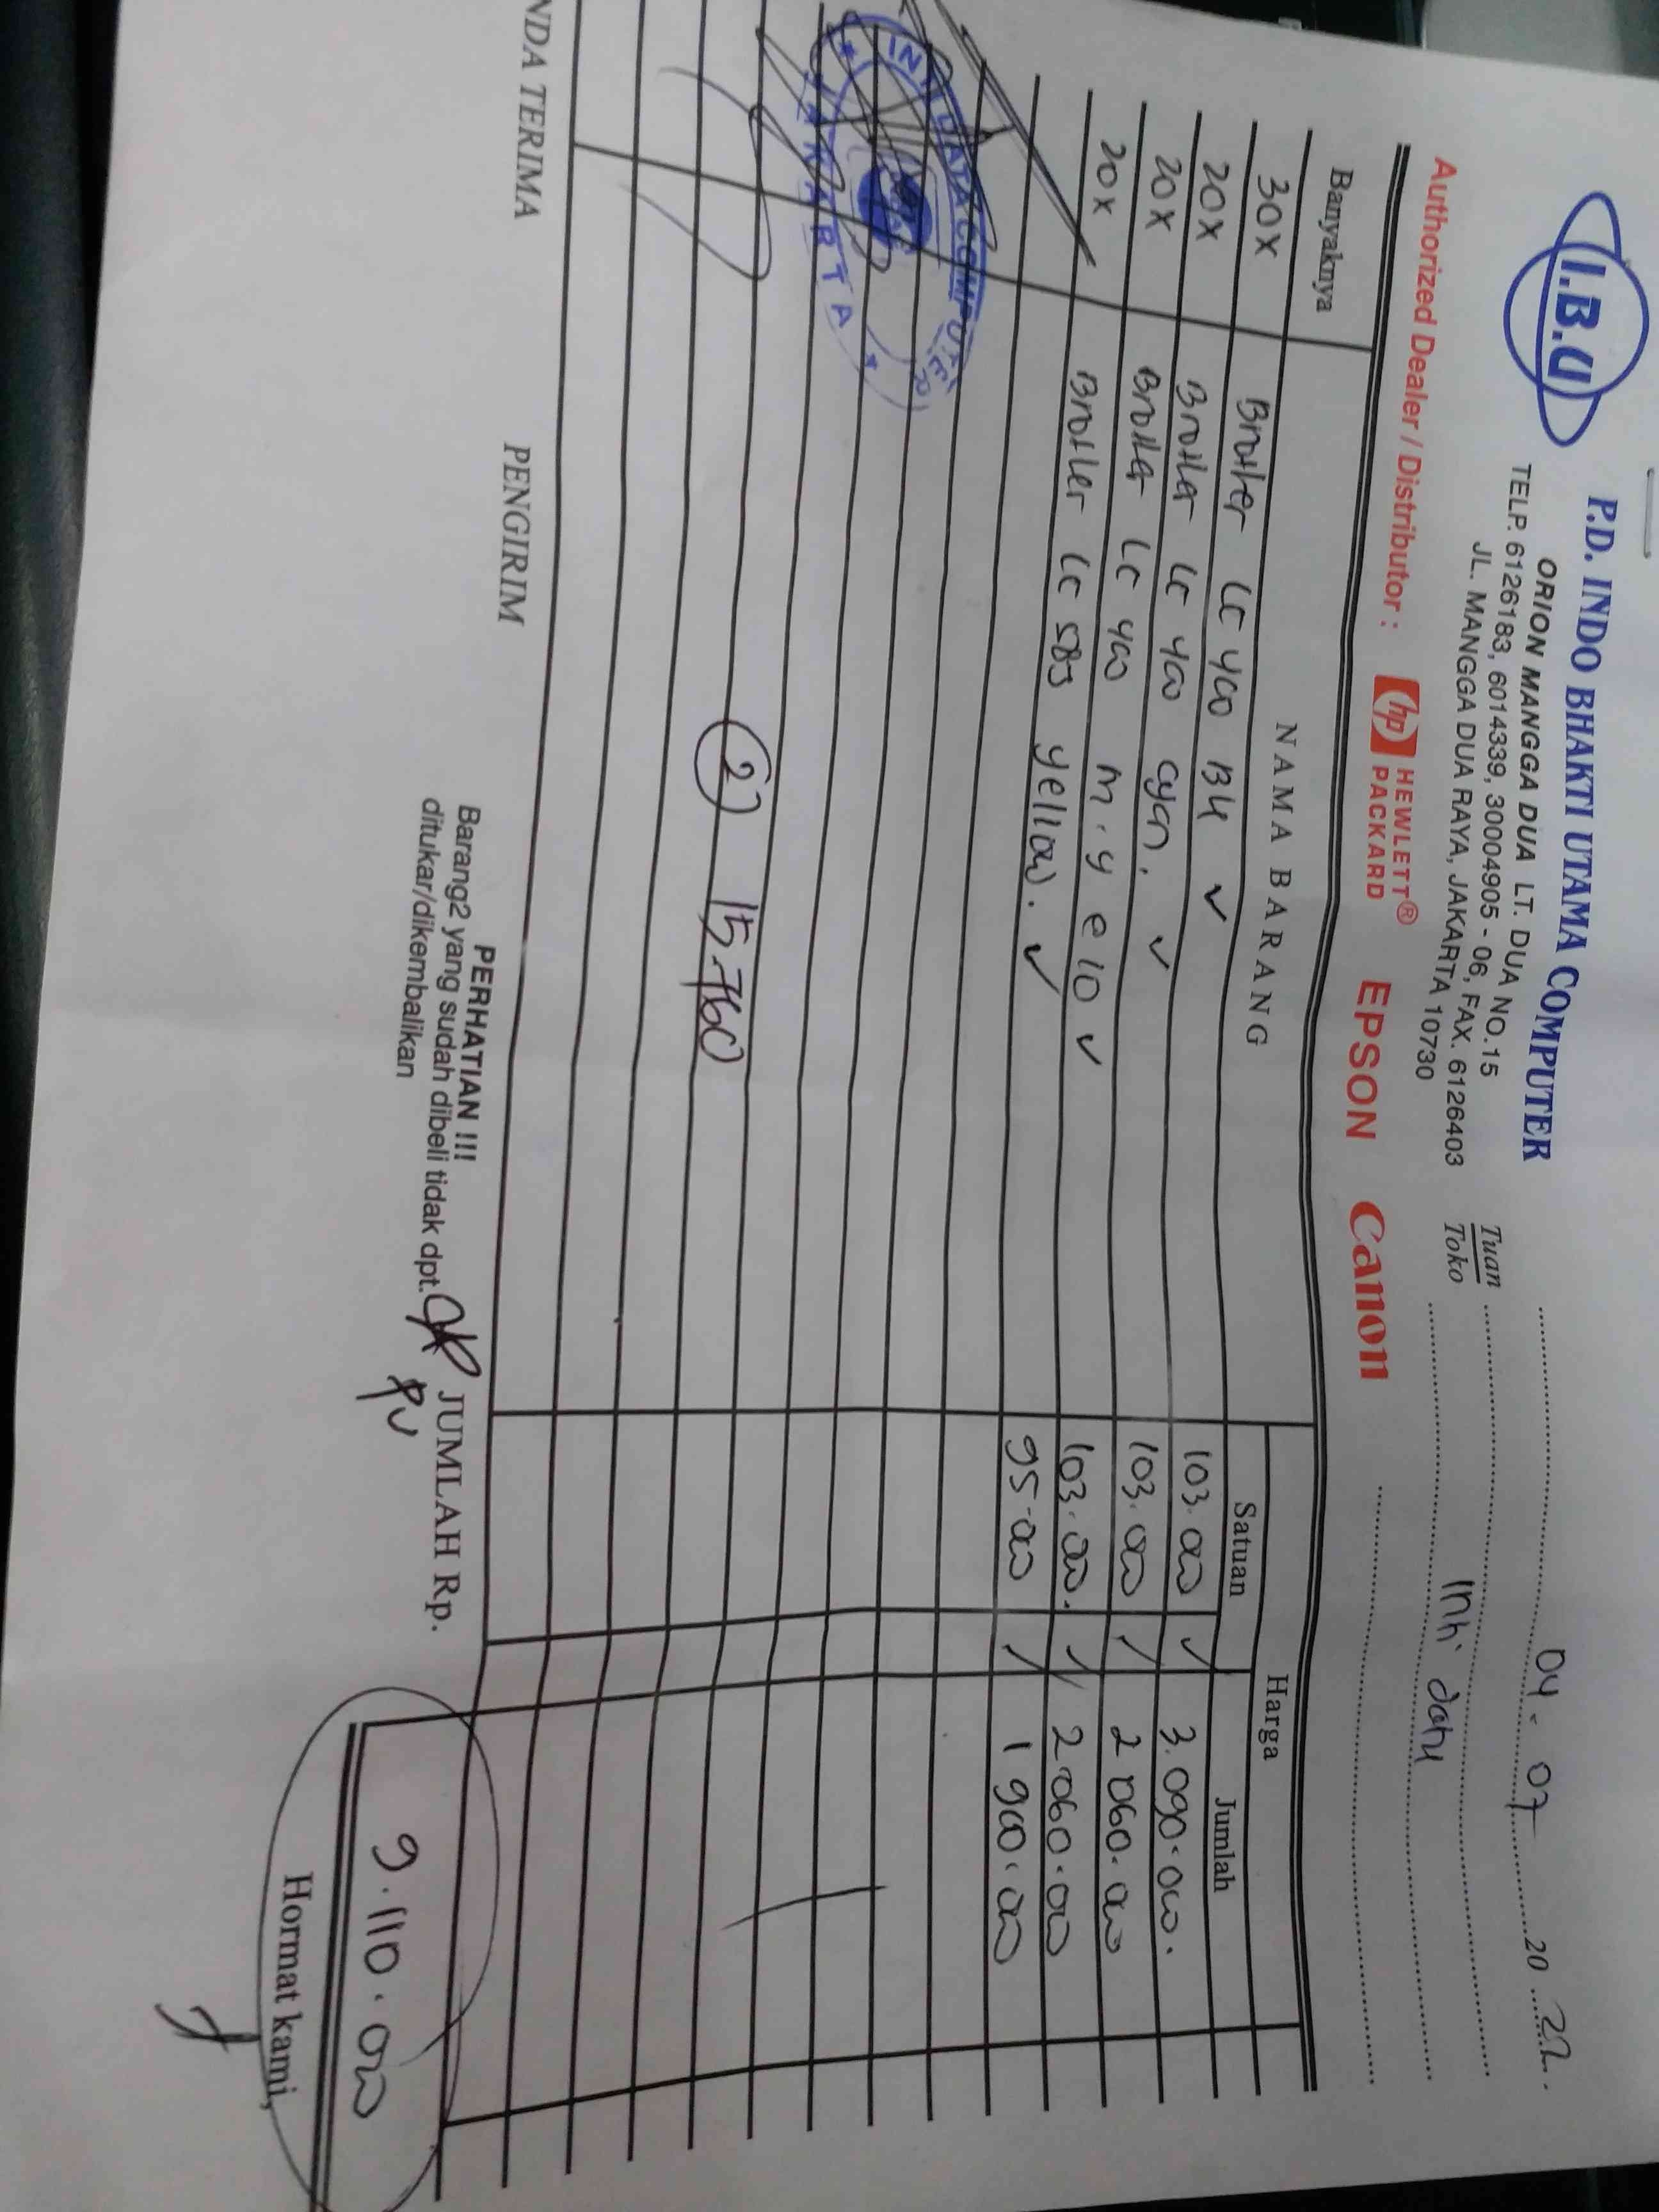 I.B.U
P.D. INDO BHAKTI UTAMA COMPUTER
ORION MANGGA DUA LT. DUA NO.15
TELP. 6126183, 6014339, 30004905 - 06, FAX. 6126403
JL. MANGGA DUA RAYA, JAKARTA 10730
04 - 07 20 22
Tuan
Toko
Authorized Dealer / Distributor : hp HEWLETT® PACKARD EPSON Canon
Banyaknya NAMA BARANG Harga
Satuan Jumlah
30x Brother LC 400 BK 103.000 3.090.000.
20x Brother LC 400 cyan. 103.000 2060.000
20x Brother LC 400 103.000. 2.060.000
20x Brother LC 583 yellow. 95.000 1 900.000
INTI DATA COMPUTER
JAKARTA
2 15.760
NDA TERIMA PENGIRIM
PERHATIAN !!!
Barang2 yang sudah dibeli tidak dpt.
ditukar/dikembalikan
JUMLAH Rp. 9.110.000
Hormat kami,